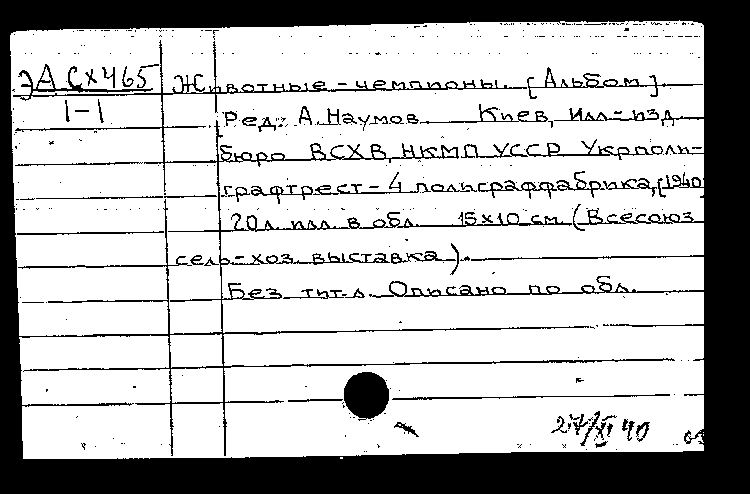 ЭА Сх465
1-1
Животные-чемпионы. [Альбом].
Ред. А. Наумов. Киев, Илл-изд.
бюро ВСХВ, НКМП УССР Укрполи-
графтрест-4 полиграффабрика, [1940]
20л. илл. в обл. 15х10 см. (Всесоюз
сель-хоз. выставка).
Без тит. л. Описано по обл.
27/XI 40